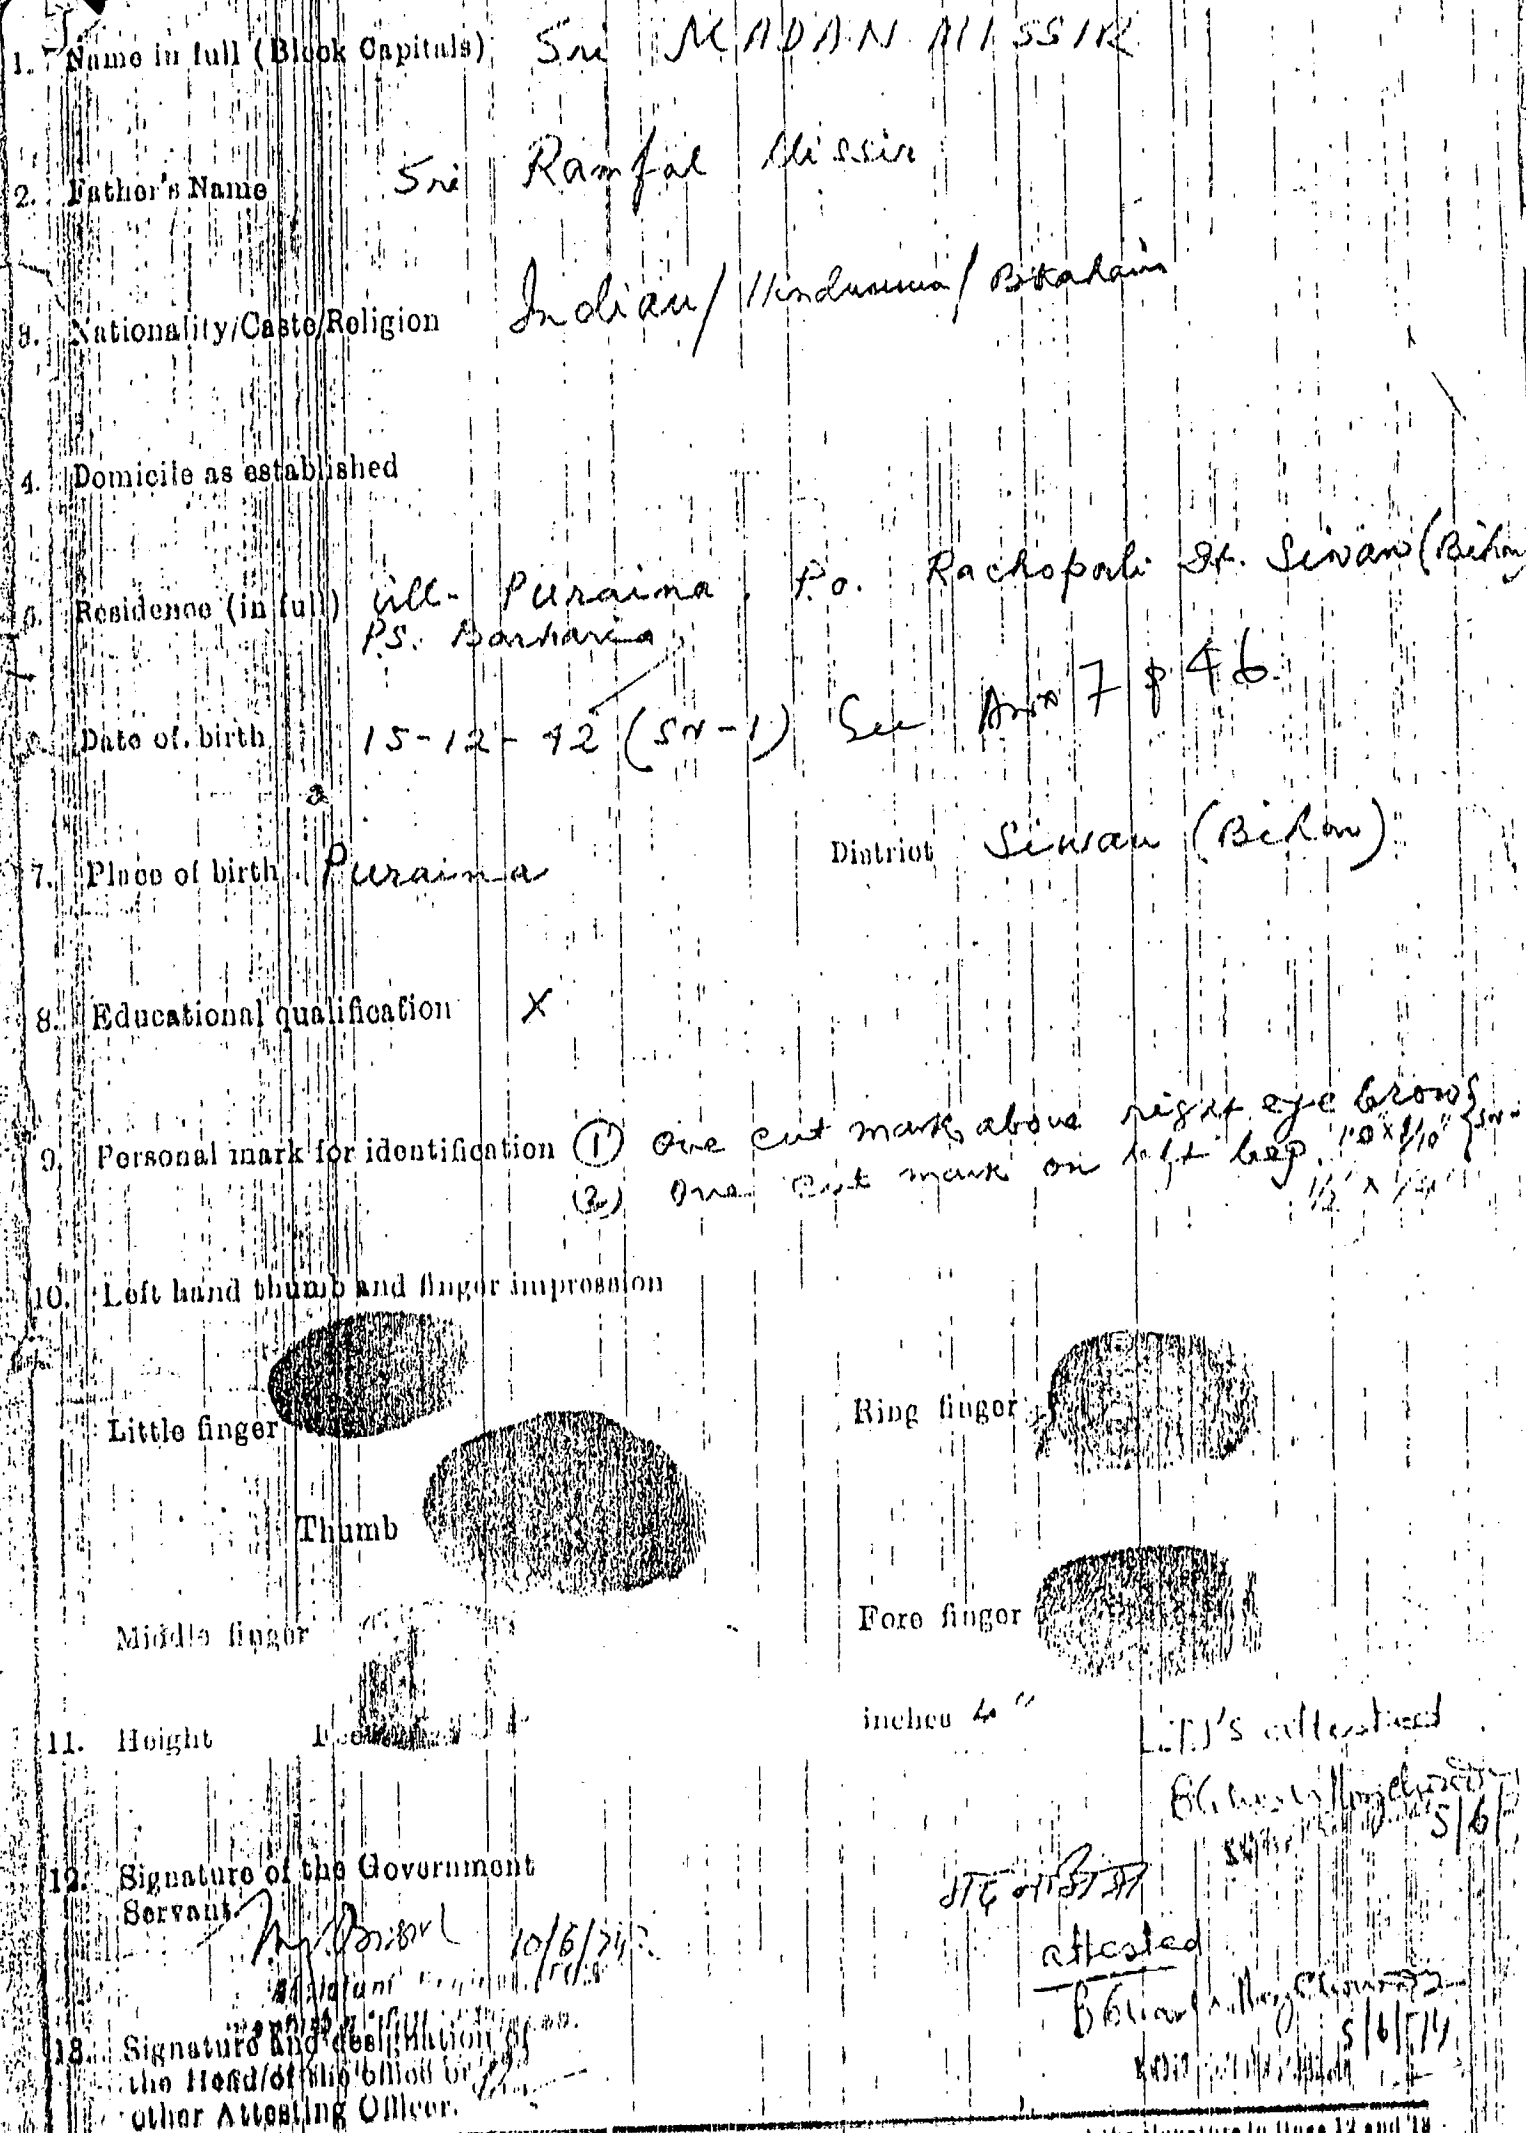 1. Name in full (Block Capitals) Sri MADAN MISSIR
2. Father's Name Sri Ramfal Missir
3. Nationality/Caste/Religion Indian/
4. Domicile as established
5. Residence (in full) Vill- Puraina. P.o. Rachopali Dt. Siwan (Bihar
P.S. Barharia
6. Date of birth 15-12-42 (SN-1) See Anx 7 p 46
7. Place of birth Puraina District Siwan (Bihar)
8. Educational qualification X
9. Personal mark for identification (1) one cut mark above right eye brow
(2) One cut mark on left leg.
10. Left hand thumb and finger impression
Little finger Ring finger
Thumb
Middle finger Fore finger
11. Height inches 4" L.T.I's attested
5/6/
12. Signature of the Government
Servant. 10/6/74
attested
5/6/74
13. Signature and designation of
the Head of the office or
other Attesting Officer.
the signature in lines 12 and 13